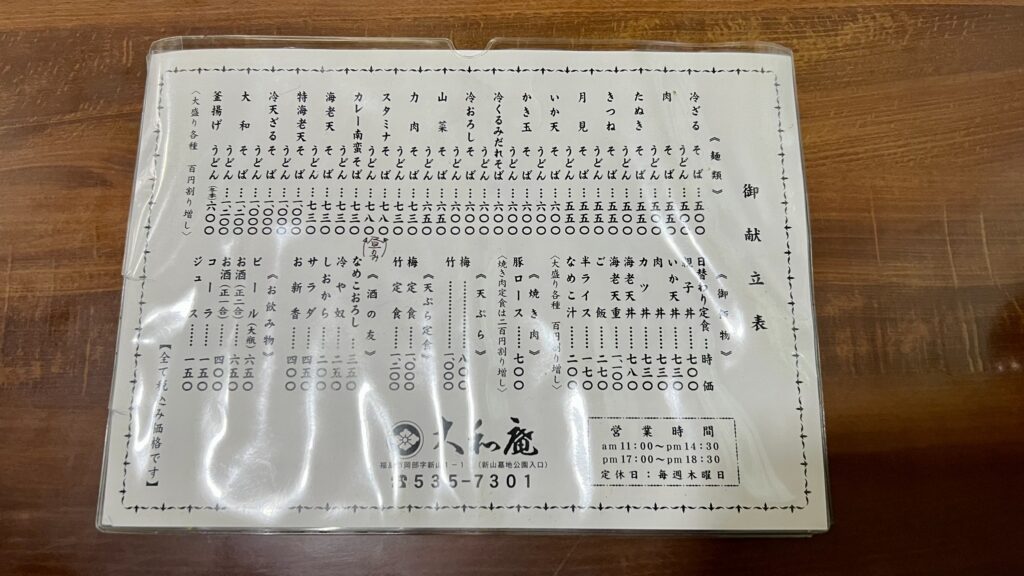 御献立表
《麺類》
冷ざる そば……五五〇
肉 そば うどん……五五〇
たぬき そば うどん……五五〇
きつね そば うどん……五五〇
月見 そば うどん……五五〇
いか天 そば うどん……六〇〇
かき玉 そば うどん……六〇〇
冷くるみだれそば……六〇〇
冷おろしそば うどん……六〇〇
山菜 そば うどん……六五〇
力肉 そば うどん……七三〇
スタミナ そば うどん……七八〇
カレー南蛮 そば うどん
海老天 そば うどん……七三〇
特海老天 そば うどん……一〇〇〇
冷天ざる そば うどん……一〇〇〇
大和 そば うどん……一二〇〇
釜揚げ うどん……六〇〇
(大盛り各種 百円割り増し)
《御飯物》
日替わり定食…時価
親子丼……七〇〇
いか天丼……七三〇
肉丼……七三〇
カツ丼……七八〇
海老天丼……七三〇
海老天重……一一〇〇
ご飯……二七〇
半ライス……一七〇
なめこ汁……二〇〇
(大盛り各種 百円割り増し)
《焼き肉》
豚ロース……七〇〇
(焼き肉定食は二百円割り増し)
《天ぷら》
梅……八〇〇
竹……一〇〇〇
《天ぷら定食》
梅定食……一〇〇〇
竹定食……一二〇〇
《酒の友》
なめこおろし……三五〇
冷や奴……二五〇
しおから……三五〇
サラダ……四五〇
お新香……四〇〇
《お飲み物》
ビール(大瓶)……六五〇
お酒(正二合)……六五〇
お酒(正一合)……三五〇
コーラ……一五〇
ジュース……一五〇
【全て税込み価格です】
大和庵
岡部字新山 (新山墓地公園入口)
☎535-7301
営業時間
am11:00〜pm14:30
pm17:00〜pm18:30
定休日：毎週木曜日